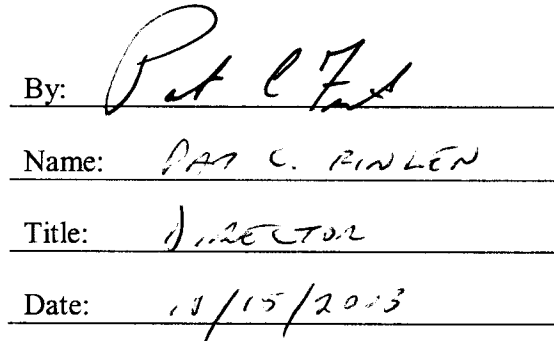 By: Pat C
Name: PAT C. FINLEN
Title: DIRECTOR
Date: /15/2013